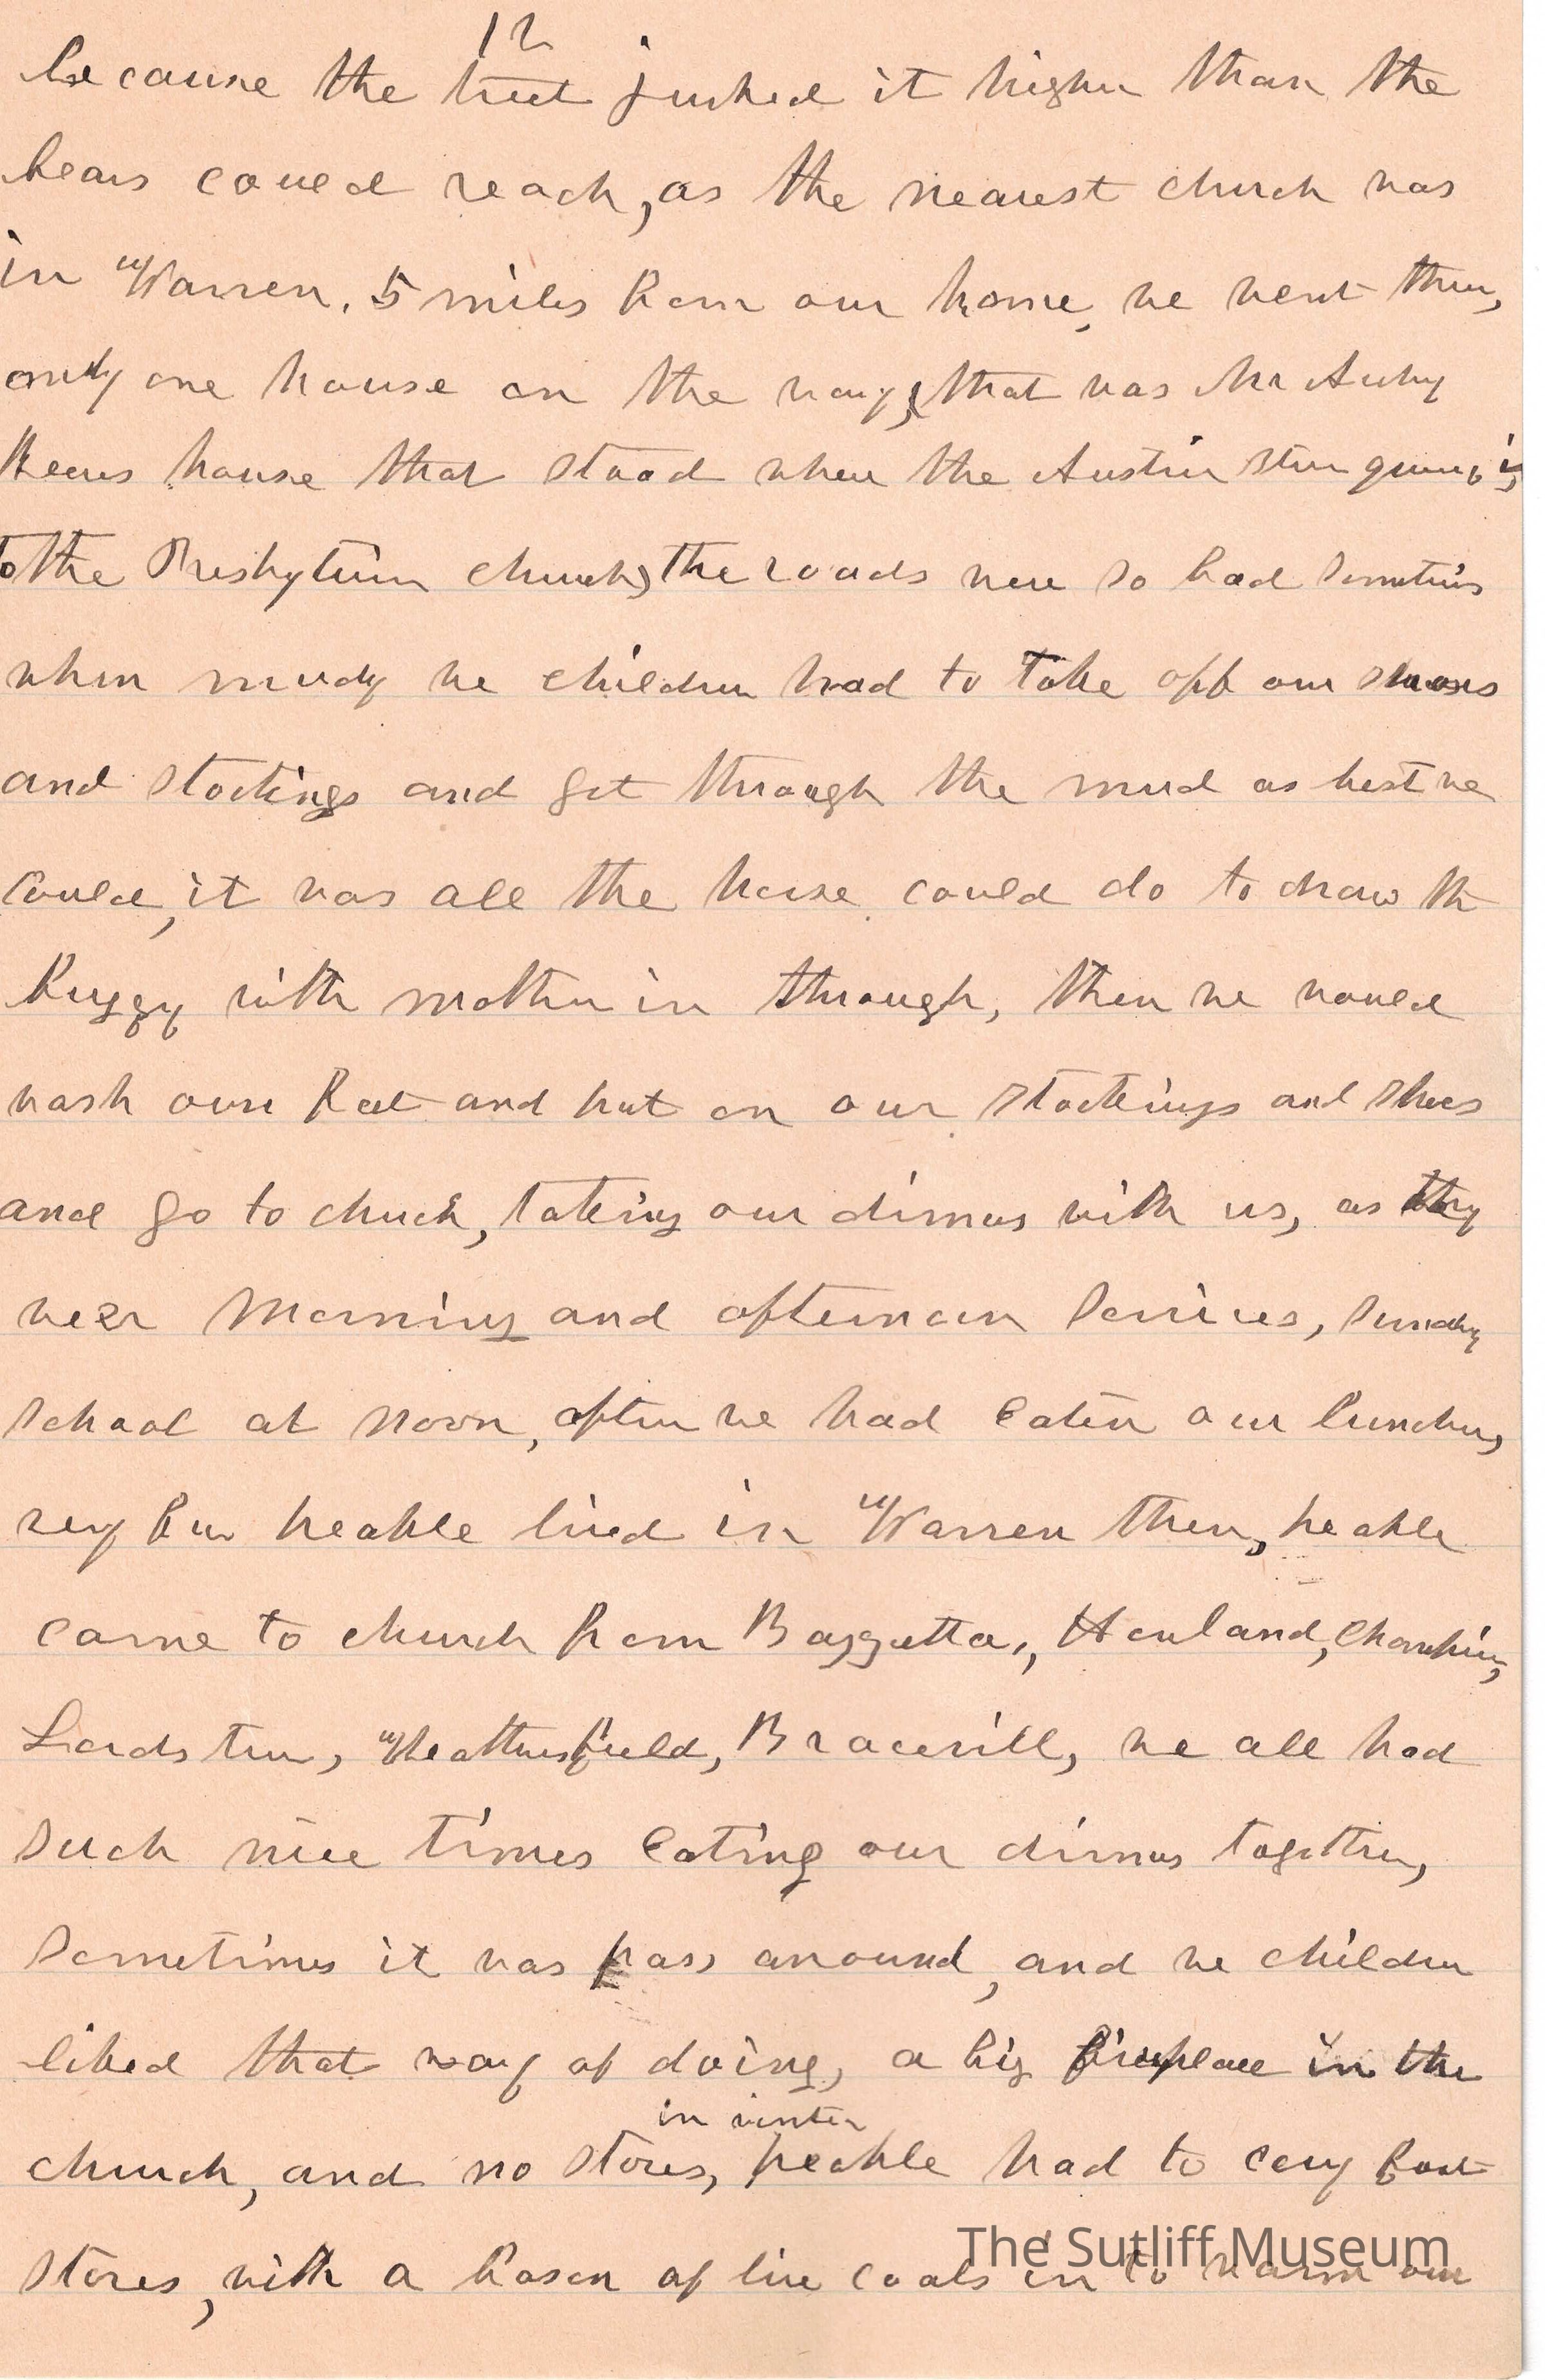 12
because the trut jurked it higher than the
bears could reach, as the nearest church was
in Warren. 5 miles from our home, we went there,
only one house on the way, that was Mr
house that stood where the Austin stone
to the Presbyterian church, the roads were so bad sometimes
when mudy we children had to take off our shoes
and stockings and get through the mud as best we
could, it was all the horse could do to draw the
buggy with mother in through, then we would
wash our feet and put on our stockings and shoes
and go to church, taking our dinners with us, as they
were Morning and afternoon Services, Sunday
school at noon, after we had eaten our lunches,
very few peaple lived in Warren then, peaple
came to church from Bazzetta, Howland, Champion,
Lordstown, Weathersfield, Bracevill, we all had
such nice times eating our dinners together,
sometimes it was pass around, and we children
liked that way of doing, a big fireplace in the
in winter
church, and no stoves, peaple had to cary foot
stoves, with a bason of live coals in to warm our
The Sutliff Museum